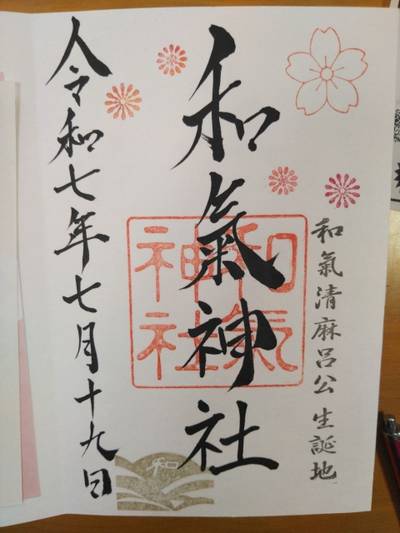 和氣清麻呂公生誕地
和氣神社
和氣神社
令和七年七月十九日